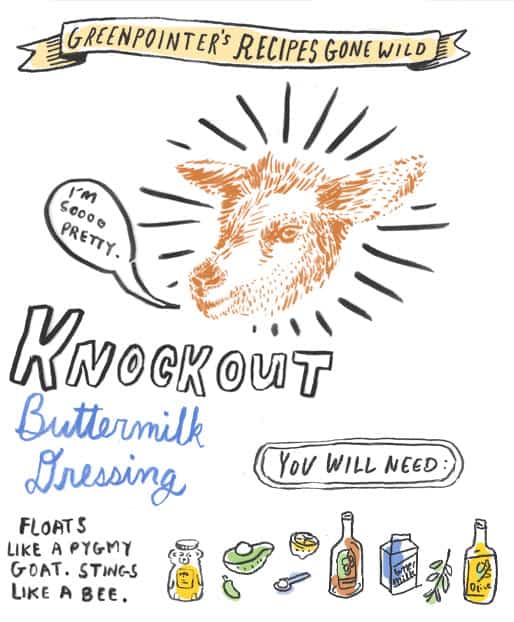 GREENPOINTER'S RECIPES GONE WILD
I'M
SOOOO
PRETTY.
KNOCKOUT
Buttermilk
Dressing
YOU WILL NEED:
FLOATS
LIKE A PYGMY
GOAT. STINGS
LIKE A BEE.
milk
Olive